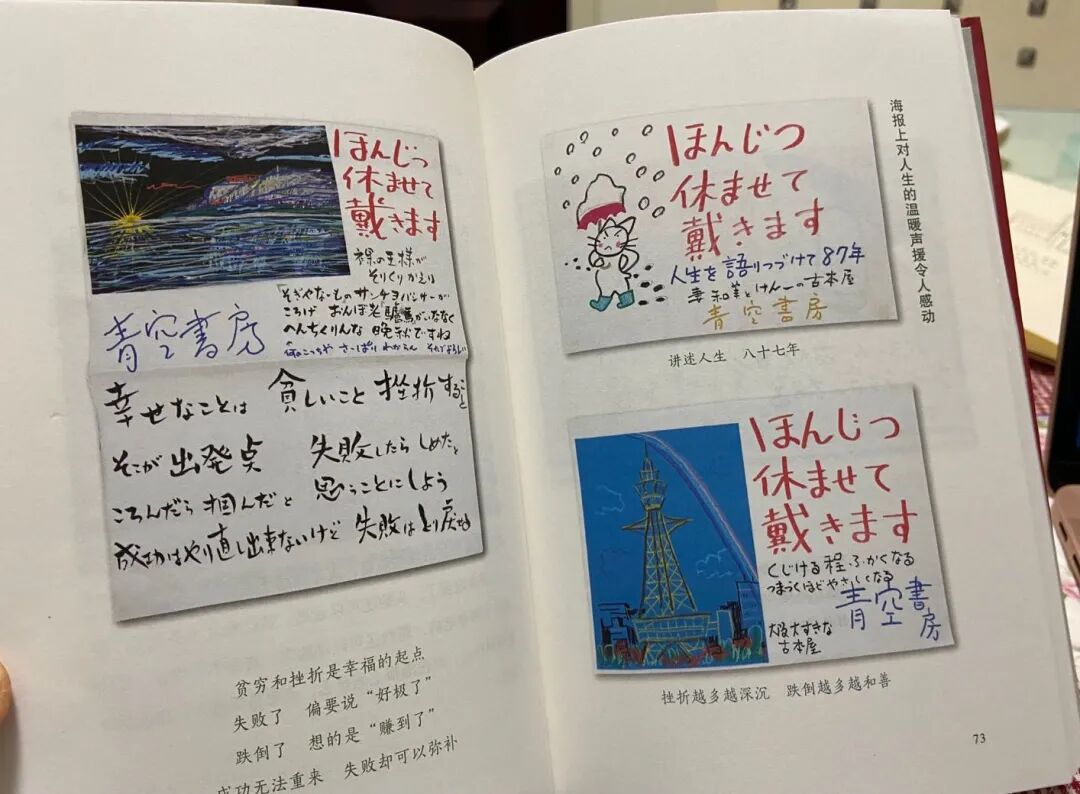 ほんじつ
休ませて
戴きます
裸の王様が
そりくりかえり
ころげ おんぼ老驢馬がいななく
へんちくりんな 晩秋ですね
青空書房
幸せなことは 貧しいこと 挫折すること
そこが出発点 失敗したらしめたと
ころんだら掴んだと 思うことにしよう
成功はやり直し出来ないけど 失敗はとり戻せる
贫穷和挫折是幸福的起点
失败了 偏要说“好极了”
跌倒了 想的是“赚到了”
成功无法重来 失败却可以弥补
海报上对人生的温暖声援令人感动
ほんじつ
休ませて
戴きます
人生を語りつづけて87年
幸和美とけん一の古本屋
青空書房
讲述人生 八十七年
ほんじつ
休ませて
戴きます
くじける程ふかくなる
つまづくほどやさしくなる
青空書房
大阪大すきな
古本屋
挫折越多越深沉 跌倒越多越和善
73